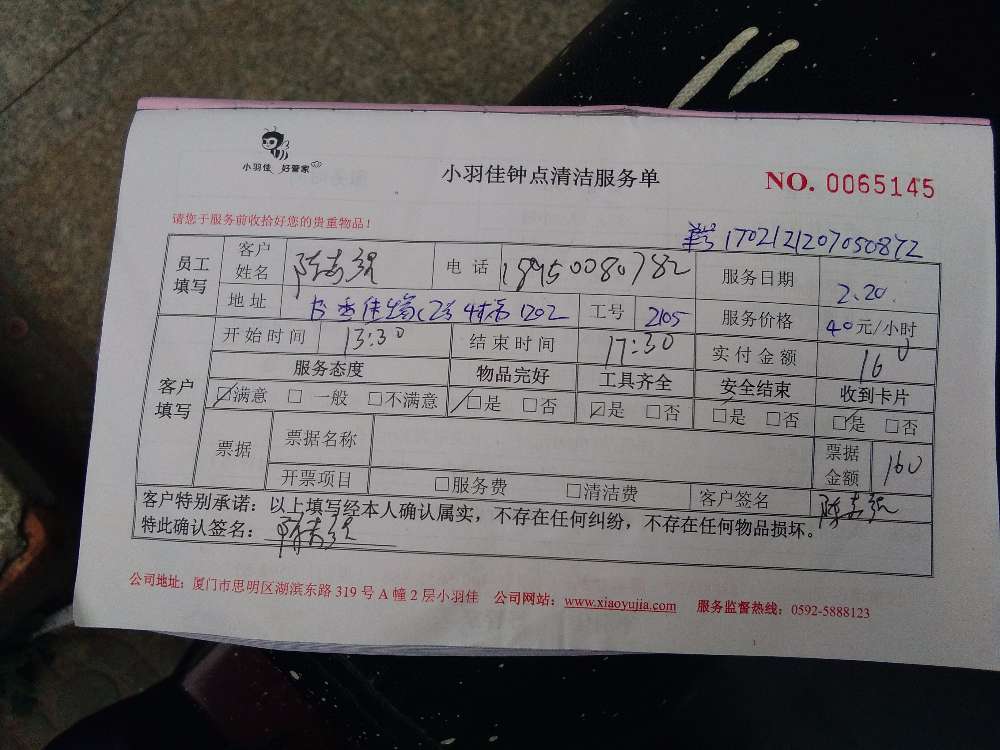 小羽佳 好管家
小羽佳钟点清洁服务单
NO. 0065145
请您于服务前收拾好您的贵重物品！
1702121207050872
员工填写 客户姓名 陈 电话 18950080782 服务日期 2.20.
地址 书香佳缘 1202 工号 2105 服务价格 40元/小时
客户填写 开始时间 13:30 结束时间 17:30 实付金额 160
服务态度 物品完好 工具齐全 安全结束 收到卡片
☑满意 □ 一般 □不满意 ☑是 □否 ☑是 □否 ☑是 □否 ☑是 □否
票据 票据名称 票据金额 160
开票项目 □服务费 □清洁费 客户签名 陈
客户特别承诺：以上填写经本人确认属实，不存在任何纠纷，不存在任何物品损坏。
特此确认签名：陈
公司地址：厦门市思明区湖滨东路 319 号 A 幢 2 层小羽佳 公司网站：www.xiaoyujia.com 服务监督热线：0592-5888123